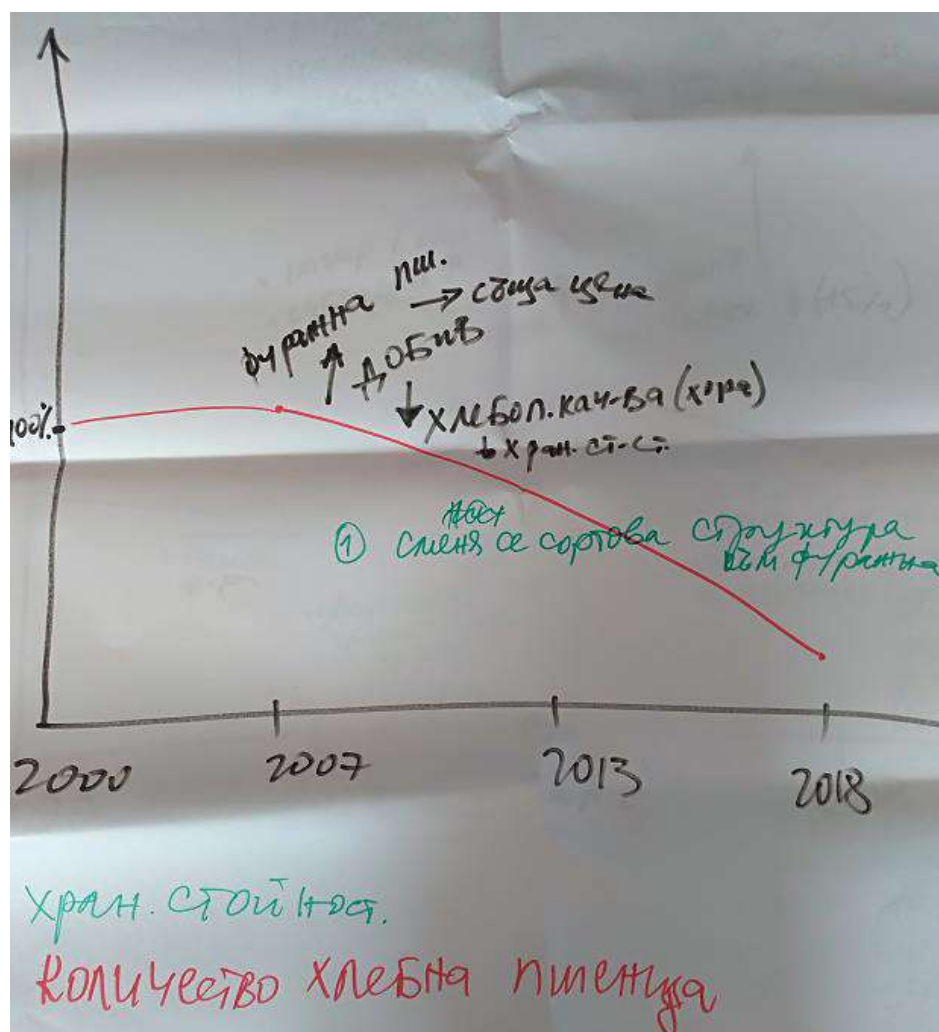 фуражна пш.
→ същa цена
↑ ДОБИВ
↓ ХЛЕБОП. КАЧ-ВА (хора)
↓ хран. ст-ст.
100%
① сменя се сортова структура
към фуражна
2000 2007 2013 2018
хран. стойност.
Количество хлебна пшеница